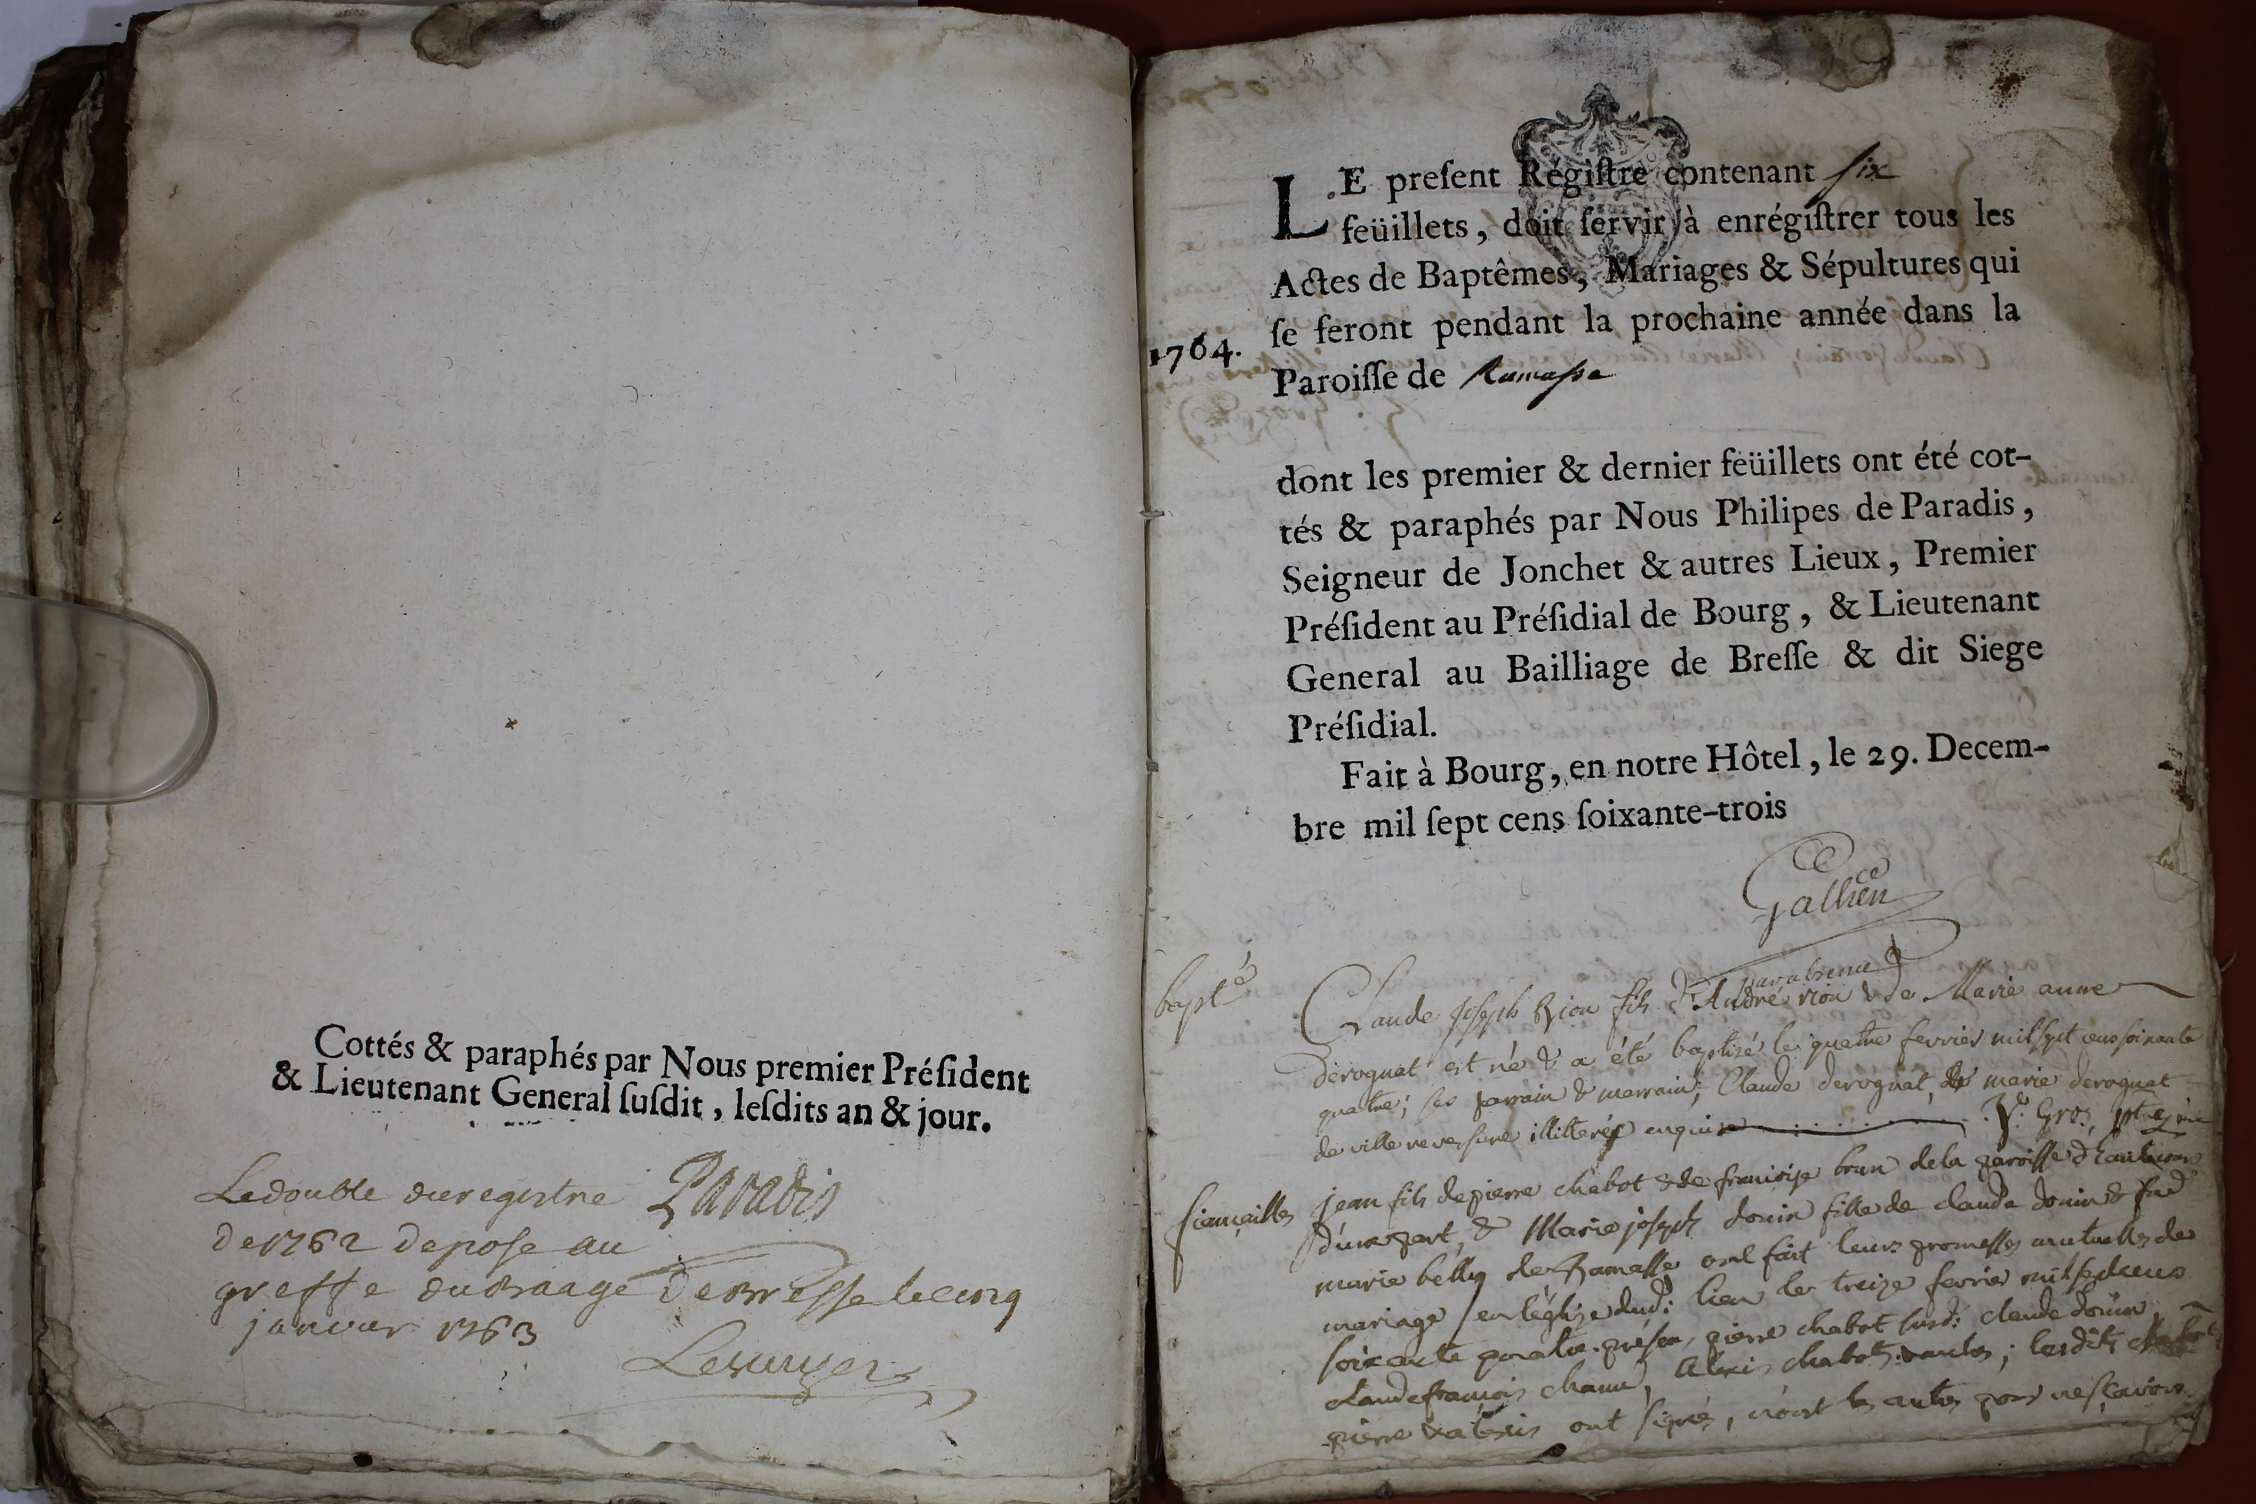 Cottés & paraphés par Nous premier Préſident
& Lieutenant General ſuſdit, leſdits an & jour.
Le double du registre Paradis
de 1762 depose au
greffe du Baage de Bresse le cinq
janvier 1763
1764.
LE preſent Régiſtre contenant ſix
feüillets, doit ſervir à enrégiſtrer tous les
Actes de Baptêmes, Mariages & Sépultures qui
ſe feront pendant la prochaine année dans la
Paroiſſe de Ramaſse
dont les premier & dernier feüillets ont été cot-
tés & paraphés par Nous Philipes de Paradis,
Seigneur de Jonchet & autres Lieux, Premier
Préſident au Préſidial de Bourg, & Lieutenant
General au Bailliage de Breſſe & dit Siege
Préſidial.
Fait à Bourg, en notre Hôtel, le 29. Decem-
bre mil ſept cens ſoixante-trois
Gallien
bapt.é
Claude Joseph Rion fils d'André rion & de Marie anne
deroguat est né & a été baptisé le quatre fevrier mil sept cens soixante
quatre; ses parrain & marraine; Claude deroguat, & marie deroguat
de villereversure illiterés enquis J. Gros, ptre
fiançailles
jean fils de pierre chabot & de françoise brun de la paroisse
d'une part, & Marie joseph donin fille de claude donin & de
marie belly de Ramasse ont fait leurs promesses mutuelles de
mariage en l'églize dud: lieu le treize fevrier mil sept cens
soixante quatre. présens pierre chabot susd: claude donin,
claude françois chanu, Alexis chabot & autres; les dits chabot
pierre & alexis ont signés, non les autres pour ne sçavoir